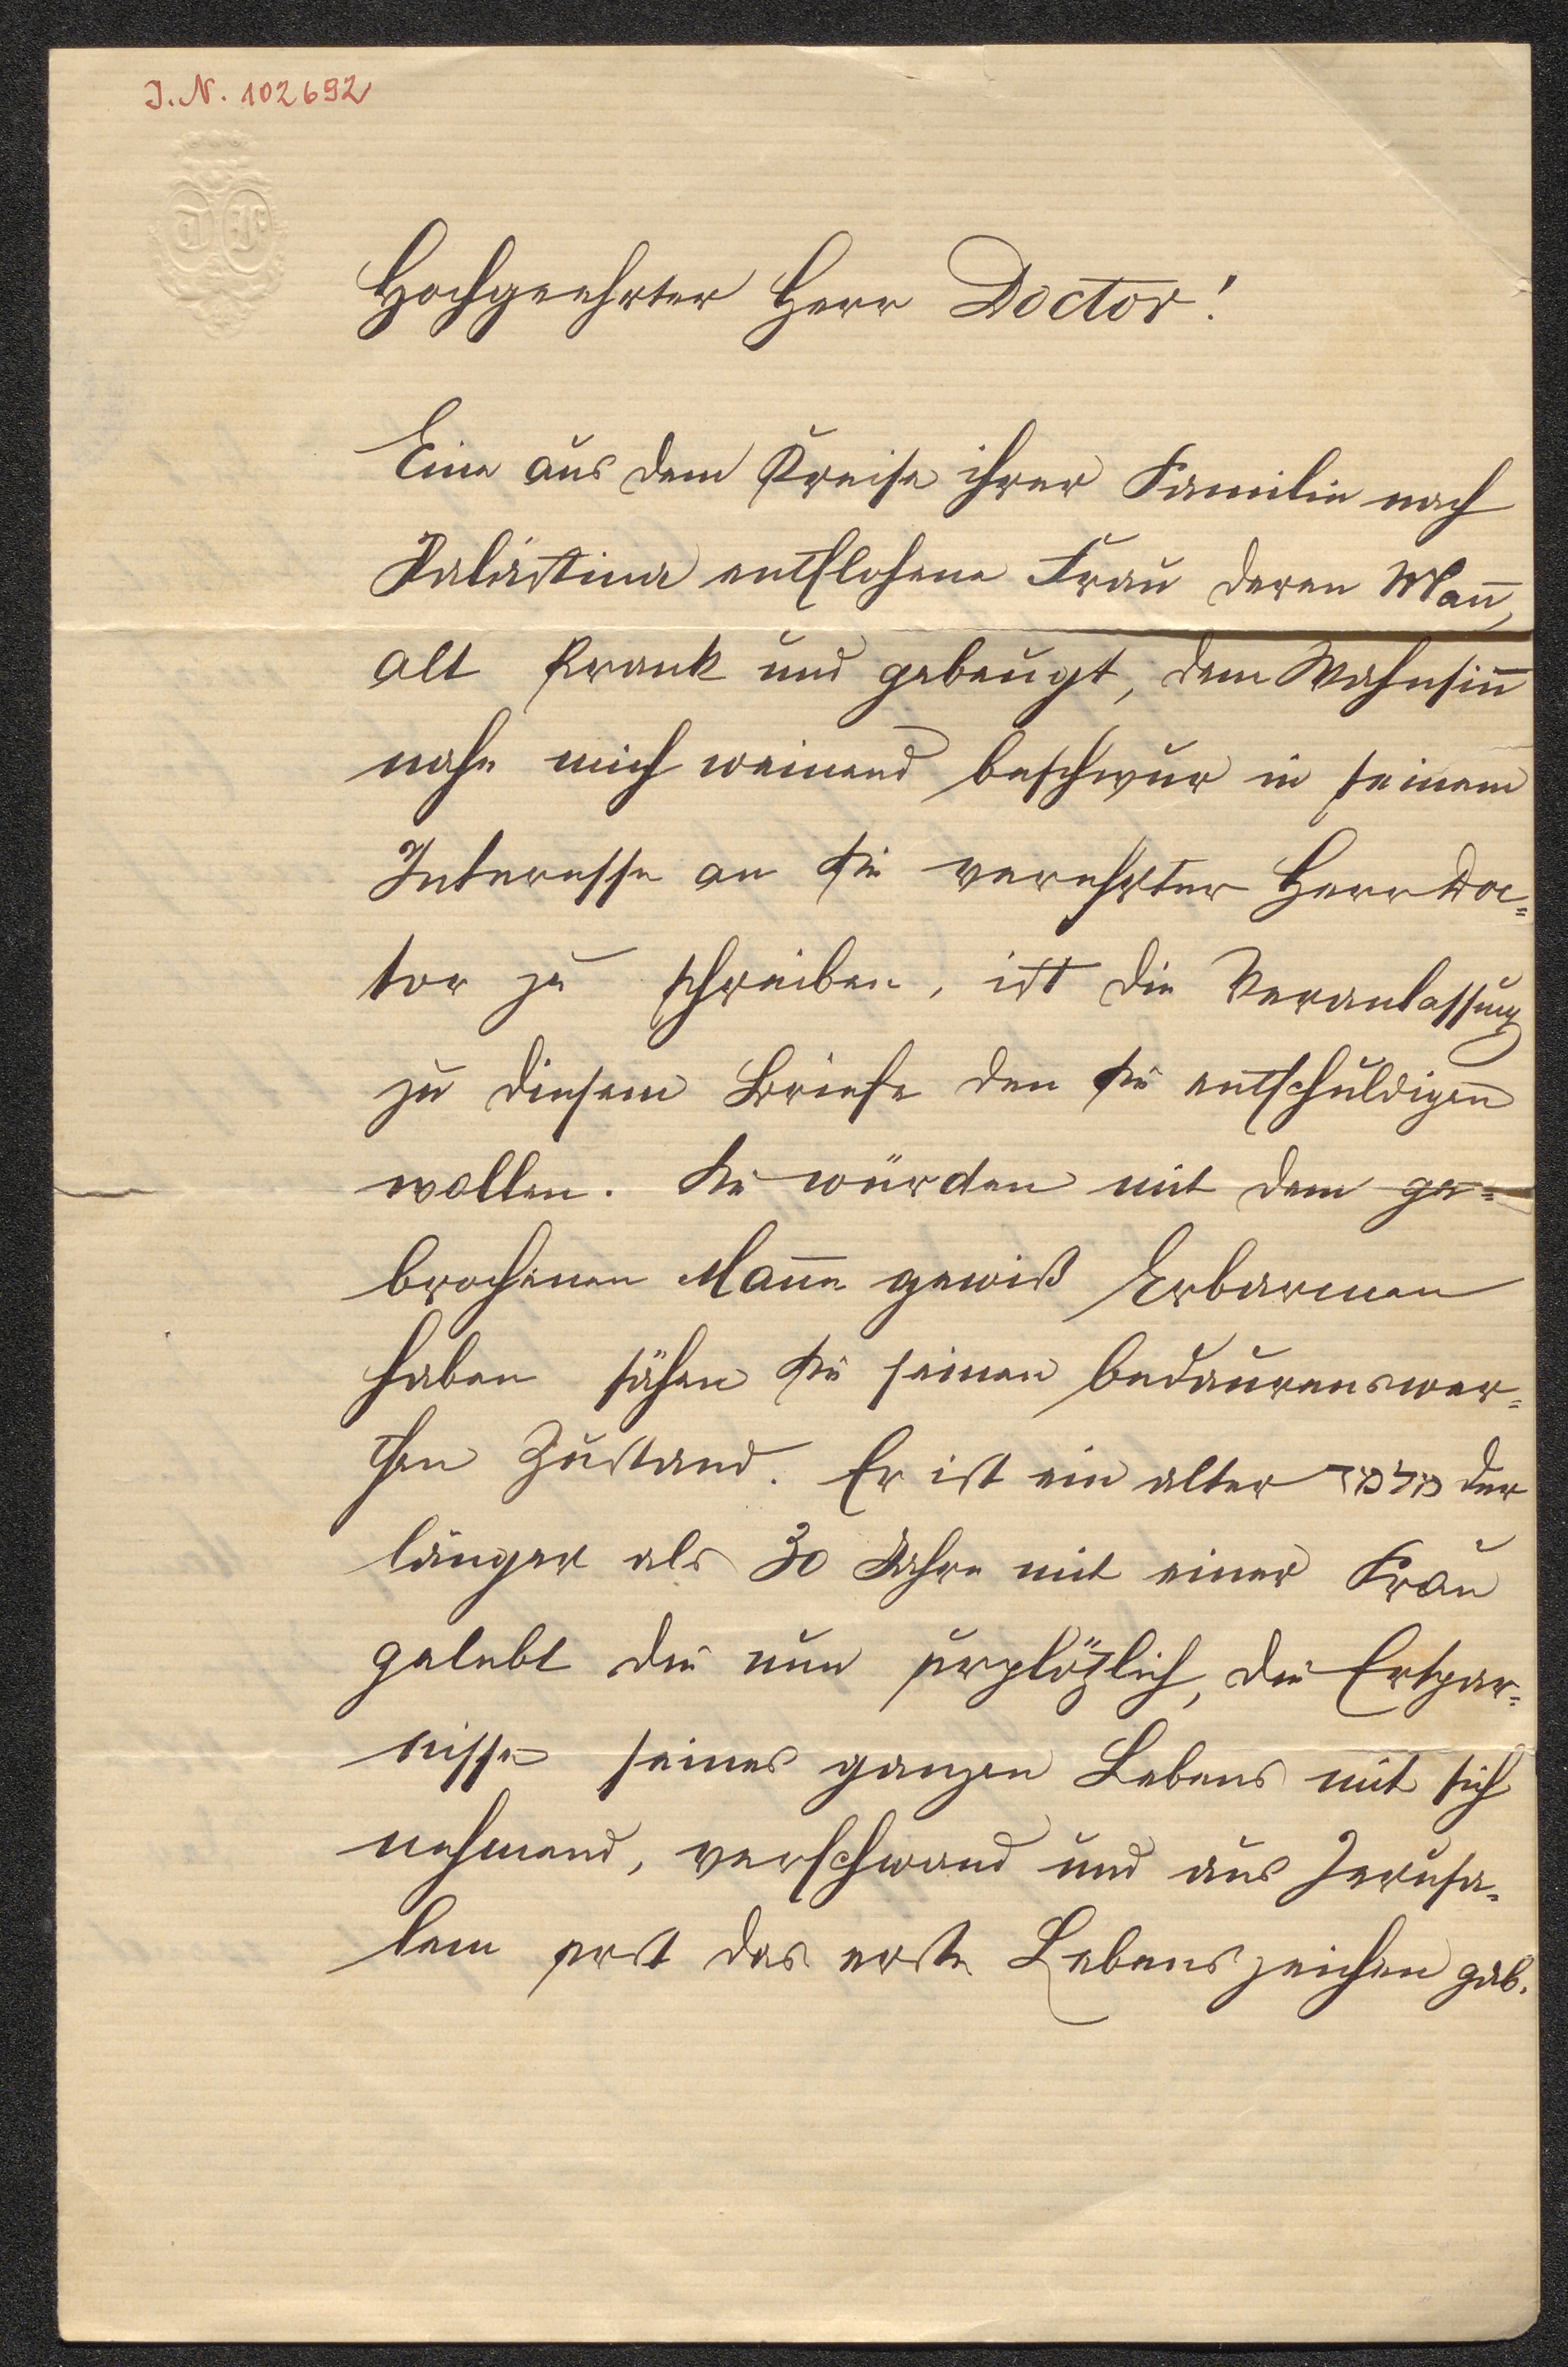 I.N. 102692
Hochgeehrter Herr Doctor!
Eine aus dem Kreise ihrer Familie nach
Palästina entflohene Frau deren Man̅,
alt krank und gebeugt, dem Wahnsin̅
nahe mich weinend beschwur in seinem
Interesse an Sie verehrter Herr Doc=
tor zu schreiben, ist die Veranlassung
zu diesem Briefe den Sie entschuldigen
wollen. Sie würden mit dem ge=
brochenen Man̅e gewiß Erbarmen
haben sähen Sie seinen bedauernswer=
then Zustand. Er ist ein alter מלמד der
länger als 30 Jahre mit einer Frau
gelebt die nun urplötzlich, die Erspar=
nisse seines ganzen Lebens mit sich
nehmend, verschwand und aus Jerusa=
lem erst das erste Lebenszeichen gab.